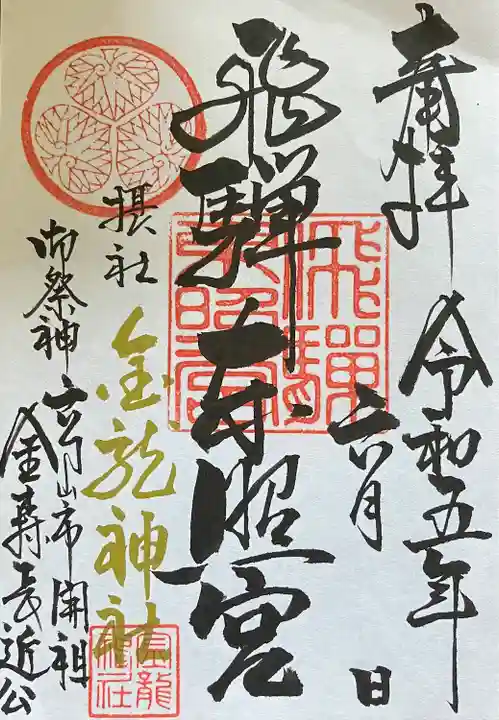 奉拝 令和五年
六月 日
飛騨東照宮
摂社 金龍神社
御祭神 高山市開祖
金森長近公
飛騨東照宮
金龍神社